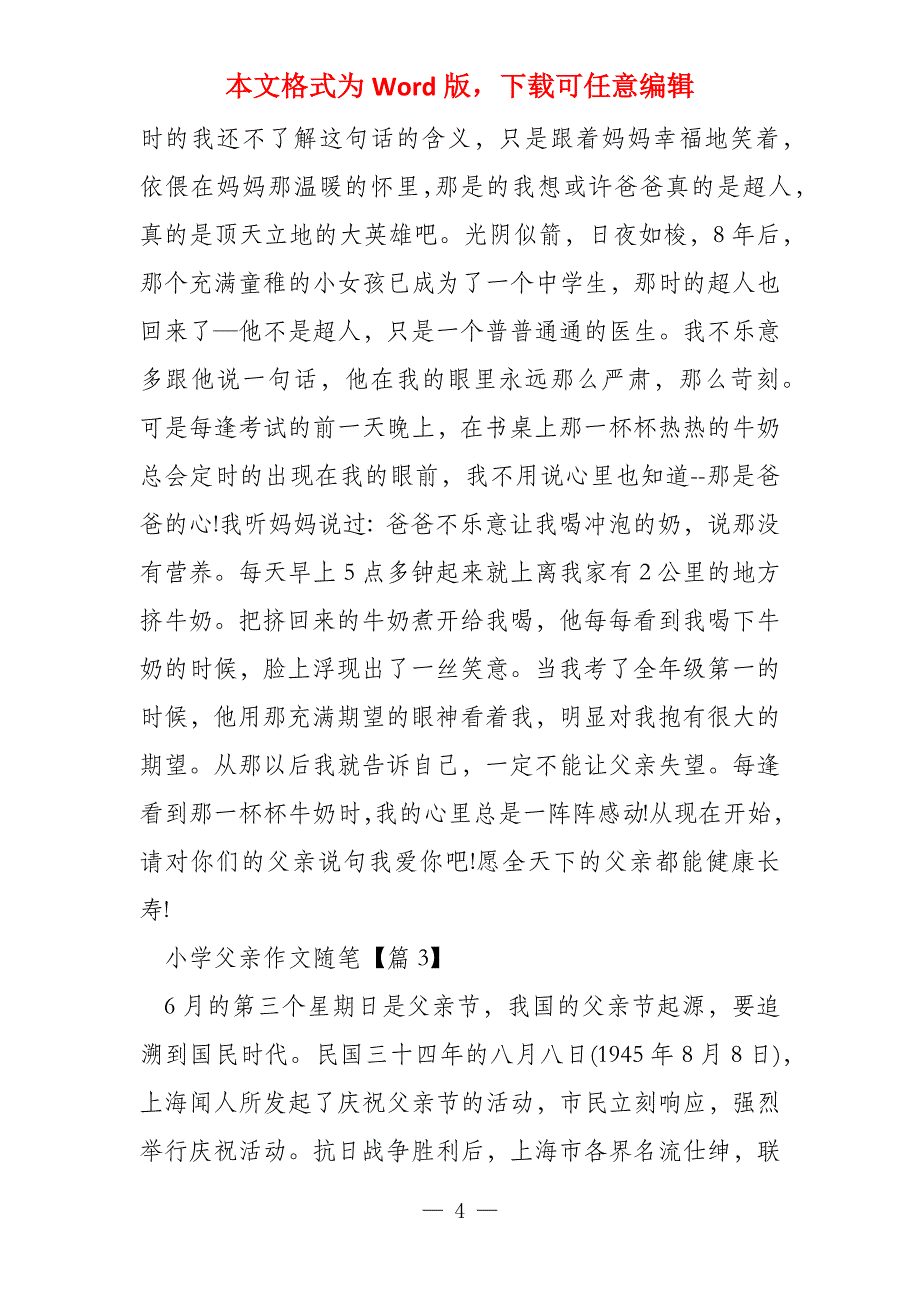 本文格式为 Word 版，下载可任意编辑
时的我还不了解这句话的含义，只是跟着妈妈幸福地笑着，
依偎在妈妈那温暖的怀里,那是的我想或许爸爸真的是超人，
真的是顶天立地的大英雄吧。光阴似箭，日夜如梭，8 年后，
那个充满童稚的小女孩已成为了一个中学生，那时的超人也
回来了—他不是超人，只是一个普普通通的医生。我不乐意
多跟他说一句话，他在我的眼里永远那么严肃，那么苛刻。
可是每逢考试的前一天晚上，在书桌上那一杯杯热热的牛奶
总会定时的出现在我的眼前，我不用说心里也知道--那是爸
爸的心!我听妈妈说过：爸爸不乐意让我喝冲泡的奶，说那没
有营养。每天早上 5 点多钟起来就上离我家有 2 公里的地方
挤牛奶。把挤回来的牛奶煮开给我喝，他每每看到我喝下牛
奶的时候，脸上浮现出了一丝笑意。当我考了全年级第一的
时候，他用那充满期望的眼神看着我，明显对我抱有很大的
期望。从那以后我就告诉自己，一定不能让父亲失望。每逢
看到那一杯杯牛奶时,我的心里总是一阵阵感动!从现在开始，
请对你们的父亲说句我爱你吧!愿全天下的父亲都能健康长
寿!
小学父亲作文随笔【篇 3】
6 月的第三个星期日是父亲节，我国的父亲节起源，要追
溯到国民时代。民国三十四年的八月八日(1945 年 8 月 8 日)，
上海闻人所发起了庆祝父亲节的活动，市民立刻响应，强烈
举行庆祝活动。抗日战争胜利后，上海市各界名流仕绅，联
— 4 —